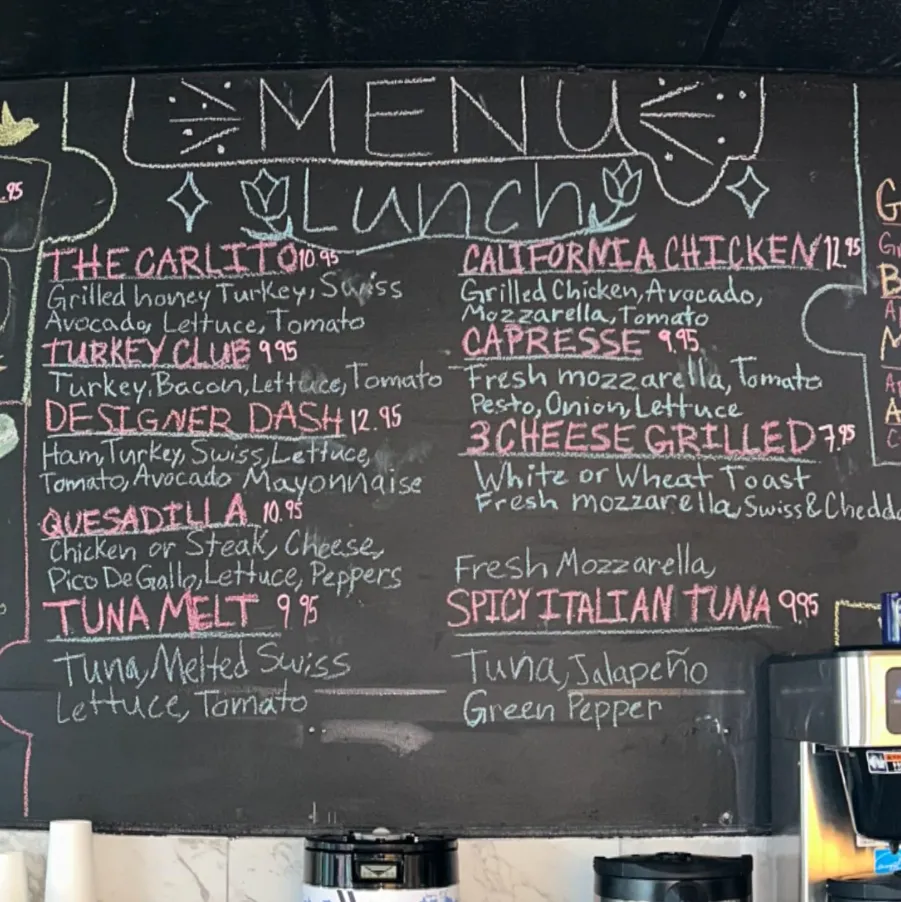 MENU
Lunch
THE CARLITO 10.95
Grilled honey Turkey, Swiss
Avocado, Lettuce, Tomato
TURKEY CLUB 9.95
Turkey, Bacon, Lettuce, Tomato
DESIGNER DASH 12.95
Ham, Turkey, Swiss, Lettuce,
Tomato, Avocado Mayonnaise
QUESADILLA 10.95
Chicken or Steak, Cheese,
Pico De Gallo, Lettuce, Peppers
TUNA MELT 9.95
Tuna, Melted Swiss
Lettuce, Tomato
CALIFORNIA CHICKEN
Grilled Chicken, Avocado,
Mozzarella, Tomato
CAPRESSE 9.95
Fresh mozzarella, Tomato
Pesto, Onion, Lettuce
3 CHEESE GRILLED 7.95
White or Wheat Toast
Fresh mozzarella, Swiss & Chedda
Fresh Mozzarella,
SPICY ITALIAN TUNA 9.95
Tuna, Jalapeño
Green Pepper
.95